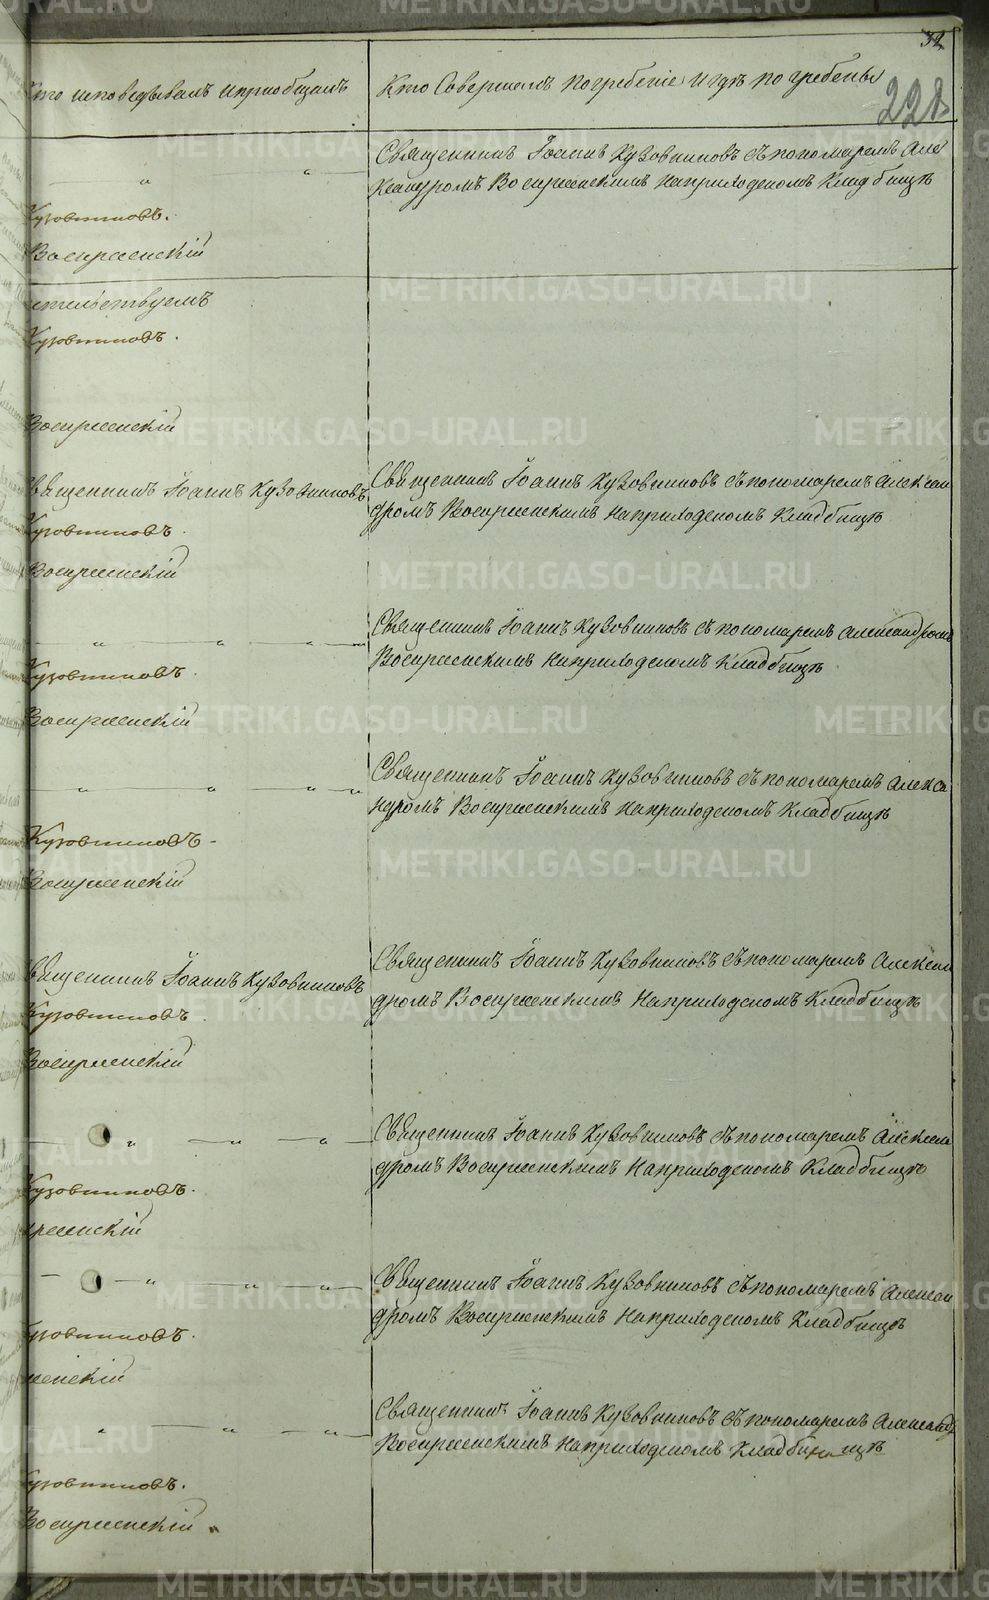 32
228
Кто исповедывалъ и приобщалъ
Кто Совершалъ погребеніе и гдѣ погребены
Священникъ Іоаннъ Кузовниковъ съ пономаремъ Але
ксандромъ Воскресенскимъ на приходскомъ Кладбищѣ
Кузовниковъ.
Воскресенскій
етельствуемъ
Кузовниковъ.
Воскресенскій
Священникъ Іоаннъ Кузовниковъ
Кузовниковъ.
Воскресенскій
Священникъ Іоаннъ Кузовниковъ съ пономаремъ Алексан
дромъ Воскресенскимъ на приходскомъ Кладбищѣ
Священникъ Іоаннъ Кузовниковъ съ пономаремъ Александромъ
Воскресенскимъ на приходскомъ Кладбищѣ.
Кузовниковъ.
Воскресенскій
Священникъ Іоаннъ Кузовниковъ съ пономаремъ Алекса
ндромъ Воскресенскимъ на приходскомъ Кладбищѣ
Кузовниковъ.
Воскресенскій
Священникъ Іоаннъ Кузовниковъ
Кузовниковъ
Воскресенскій
Священникъ Іоаннъ Кузовниковъ съ пономаремъ Алексан
дромъ Воскресенскимъ на приходскомъ Кладбищѣ
Священникъ Іоаннъ Кузовниковъ съ пономаремъ Алексан
дромъ Воскресенскимъ на приходскомъ Кладбищѣ
Кузовниковъ.
ресенскій
Священникъ Іоаннъ Кузовниковъ съ пономаремъ Алексан
дромъ Воскресенскимъ на приходскомъ Кладбищѣ
узовниковъ.
сенскій
Священникъ Іоаннъ Кузовниковъ съ пономаремъ Александр
Воскресенскимъ на приходскомъ Кладбищѣ
Кузовниковъ.
Воскресенскій
METRIKI.GASO-URAL.RU